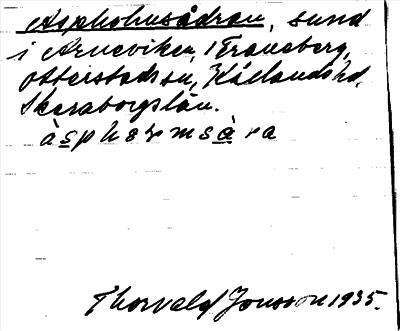 Aspholmsådran, sund
i Arneviken, i Traneberg,
Otterstads sn, Kållands hd.
Skaraborgs län.
àspholmsàra
Thorvald Jonsson 1935.